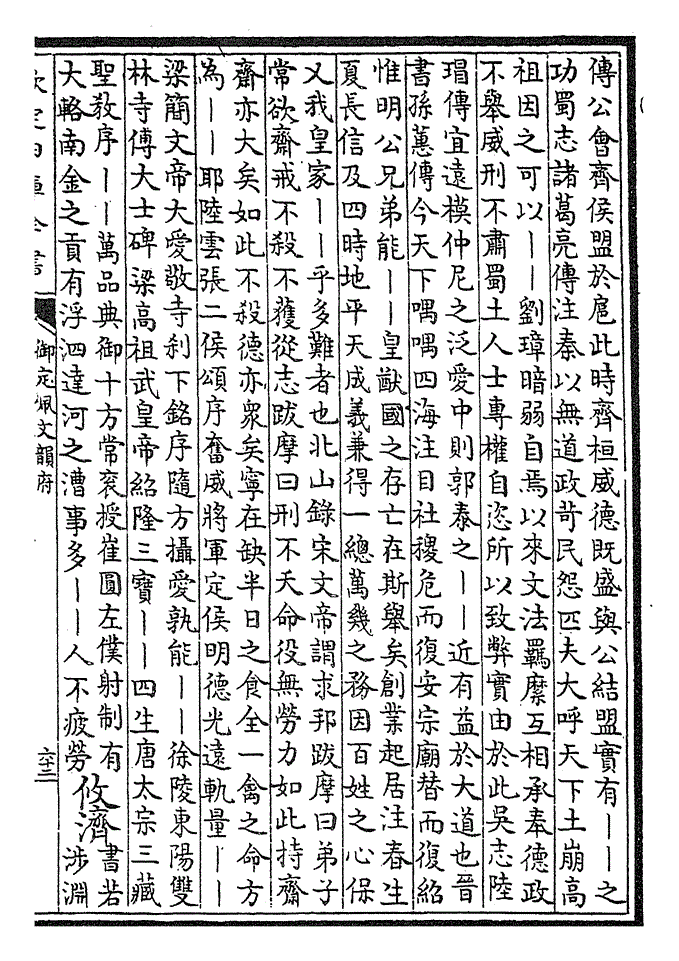 傳公會齊侯盟於扈此時齊桓威德既盛與公結盟實有——之
功蜀志諸葛亮傳注秦以無道政苛民怨匹夫大呼天下土崩高
祖因之可以——劉璋暗弱自焉以來文法羈縻互相承奉德政
不舉威刑不肅蜀土人士專權自恣所以致弊實由於此吳志陸
瑁傳宜遠模仲尼之泛愛中則郭泰之——近有益於大道也晉
書孫蕙傳今天下喁喁四海注目社稷危而復安宗廟替而復紹
惟明公兄弟能——皇猷國之存亡在斯舉矣創業起居注春生
夏長信及四時地平天成義兼得一總萬幾之務因百姓之心保
乂我皇家——乎多難者也北山錄宋文帝謂求邦跋摩曰弟子
常欲齋戒不殺不獲從志跋摩曰刑不夭命役無勞力如此持齋
齋亦大矣如此不殺德亦衆矣寧在缺半日之食全一禽之命方
為——耶陸雲張二侯頌序奮威將軍定侯明德光遠軌量——
梁簡文帝大愛敬寺刹下銘序隨方攝愛孰能——徐陵東陽雙
林寺傅大士碑梁高祖武皇帝紹隆三寶——四生唐太宗三藏
聖教序——萬品典御十方常袞授崔圓左僕射制有攸濟書若
大輅南金之貢有浮泗達河之漕事多——人不疲勞涉淵
欽定四庫全書
御定佩文韻府
六十三